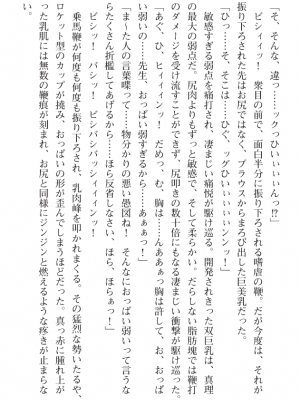 「そ、そんな、違っ……ックっひいいぃぃんっ⁉」
ピシィィッ！　衆目の前で、面白半分に振り下ろされる嗜虐の鞭。だが今度は、それが
振り下ろされた先はお尻ではなく、ブラウスからまろび出した巨美乳だった。
「ひっっ……そ、そこは……ひぐ、ッグひいぃぃいぃぃンっ！」
敏感すぎる弱点を痛打され、凄まじい痛悦が駆け巡る。開発されきった双巨乳は、真理
の最大の弱点だ。尻肉よりもずっと敏感で、そして柔らかい。だらしない脂肪塊では鞭打
のダメージを受け流すことができず、尻叩きの数十倍にもなる凄まじい衝撃が駆け巡った。
「あぐ、ひ、ヒィィインっ！　だめっ、む、胸は……んああぁっ胸は許して、お、おっぱ
い弱いの……先生、おっぱい弱すぎるから……あぁぁっ！」
「また人の言葉喋って……物分かりの悪い愚図ね！　そんなにおっぱい弱いって言うな
らたくさん折檻してあげるから……ほら反省しなさい、ほら、ほらぁっ！」
ピシッ！　バシッ！　ビシバシバッシィィインッ！
乗馬鞭が何度も何度も振り下ろされ、乳肉峰を叩かれまくる。その猛烈な勢いたるや、
ロケット型のカップが撓み、おっぱいの形が歪んでしまうほどだった。真っ赤に腫れ上が
った乳肌には無数の鞭痕が刻まれ、お尻と同様にジンジンと燃えるような疼きが止まらな
い。